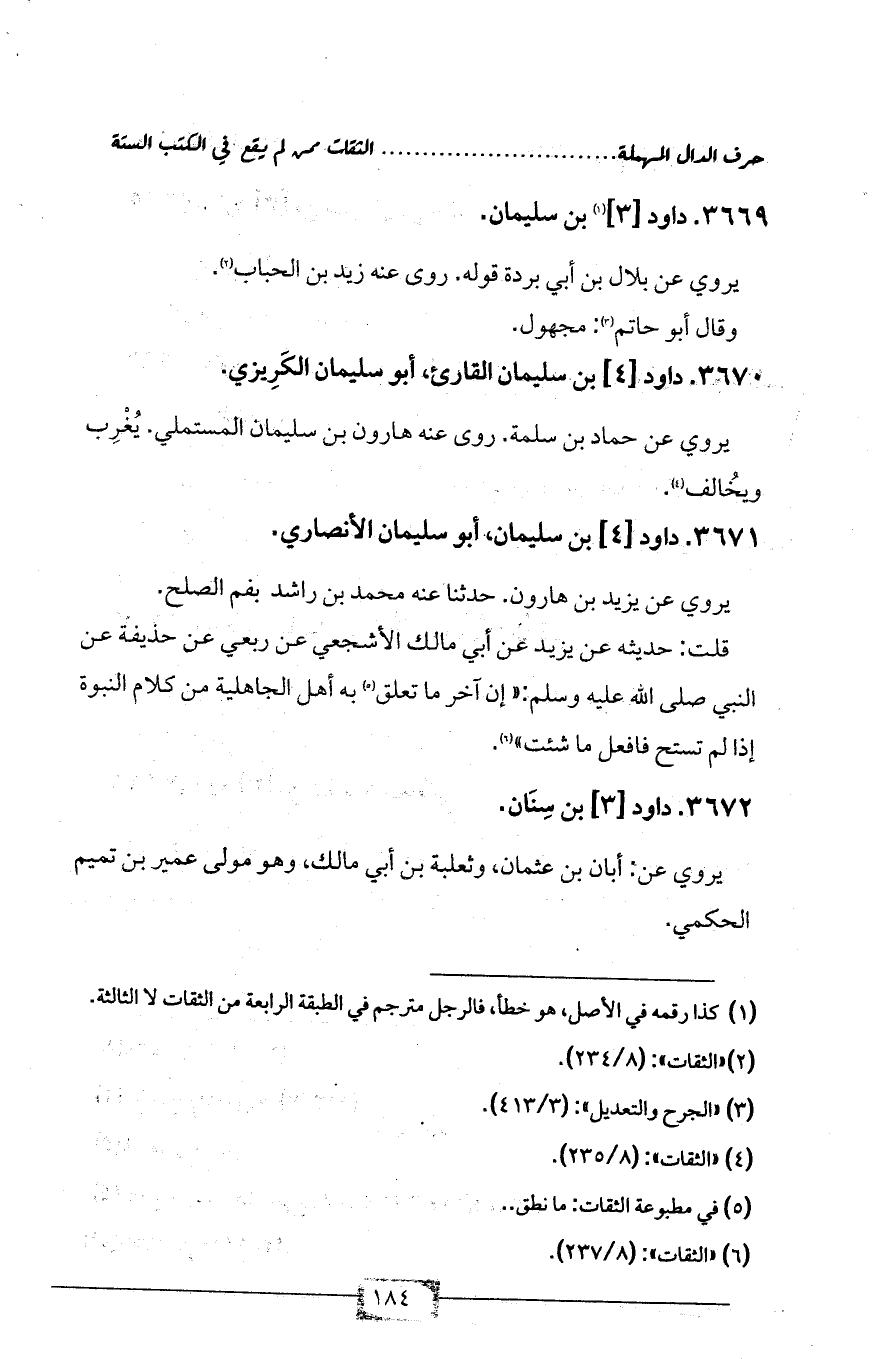 حرف الدال المهملة............................ الثقات ممن لم يقع في الكتب الستة
٣٦٦٩. داود [٣](١) بن سليمان.
يروي عن بلال بن أبي بردة قوله. روى عنه زيد بن الحباب(٢).
وقال أبو حاتم(٣): مجهول.
٣٦٧٠. داود [٤] بن سليمان القارئ، أبو سليمان الكَرِيزي.
يروي عن حماد بن سلمة. روى عنه هارون بن سليمان المستملي. يُغْرِب
ويخُالف(٤).
٣٦٧١. داود [٤] بن سليمان، أبو سليمان الأنصاري.
يروي عن يزيد بن هارون. حدثنا عنه محمد بن راشد بفم الصلح.
قلت: حديثه عن يزيد عن أبي مالك الأشجعي عن ربعي عن حذيفة عن
النبي صلى الله عليه وسلم:« إن آخر ما تعلق(٥) به أهل الجاهلية من كلام النبوة
إذا لم تستح فافعل ما شئت»(٦).
٣٦٧٢. داود [٣] بن سِنَان.
يروي عن: أبان بن عثمان، وثعلبة بن أبي مالك، وهو مولى عمير بن تميم
الحكمي.
(١) كذا رقمه في الأصل، هو خطأ، فالرجل مترجم في الطبقة الرابعة من الثقات لا الثالثة.
(٢)«الثقات»: (٢٣٤/٨).
(٣) «الجرح والتعديل»: (٤١٣/٣).
(٤) «الثقات»: (٢٣٥/٨).
(٥) في مطبوعة الثقات: ما نطق..
(٦) «الثقات»: (٢٣٧/٨).
١٨٤